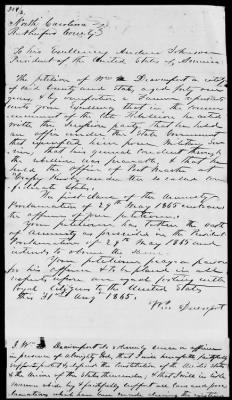 North Carolina
Rutherford County
To his Excellency Andrew Johnson
President of the United States of America
The petition of Wm Davenport a citizen
of said County and State, aged fifty one
years & by occupation a Farmer respectfully
unto your
of the late Rebellion he acted
with the party that he held
an office under the State Government
that exempted him from Military Ser
vice, that his general conduct through
the rebellion was peaceable, & that he
held the office of Post Master at
under the so called Con
federate States.
The first clause in the Amnesty
Proclamation of 29th May 1865 embraces
the offences of your petitioner.
Your petitioner has taken the oath
of Amnesty as prescribed in the President
Proclamation of 29th May 1865 and
intends to observe the same
Your petitioner prays a pardon
for his offences & to be placed in all
respects upon an equal footing with
loyal citizens to the United States
this 31st Aug 1865.
Wm Davenport
I Wm Davenport do solemnly swear or affirm
in presence of Almighty God, that I will henceforth faithfully
support & defend the Constitution of the United States
& the Union of the States thereunder, & that I will in like
manner abide by & faithfully support all laws and proc
lamations which have been made during the existing